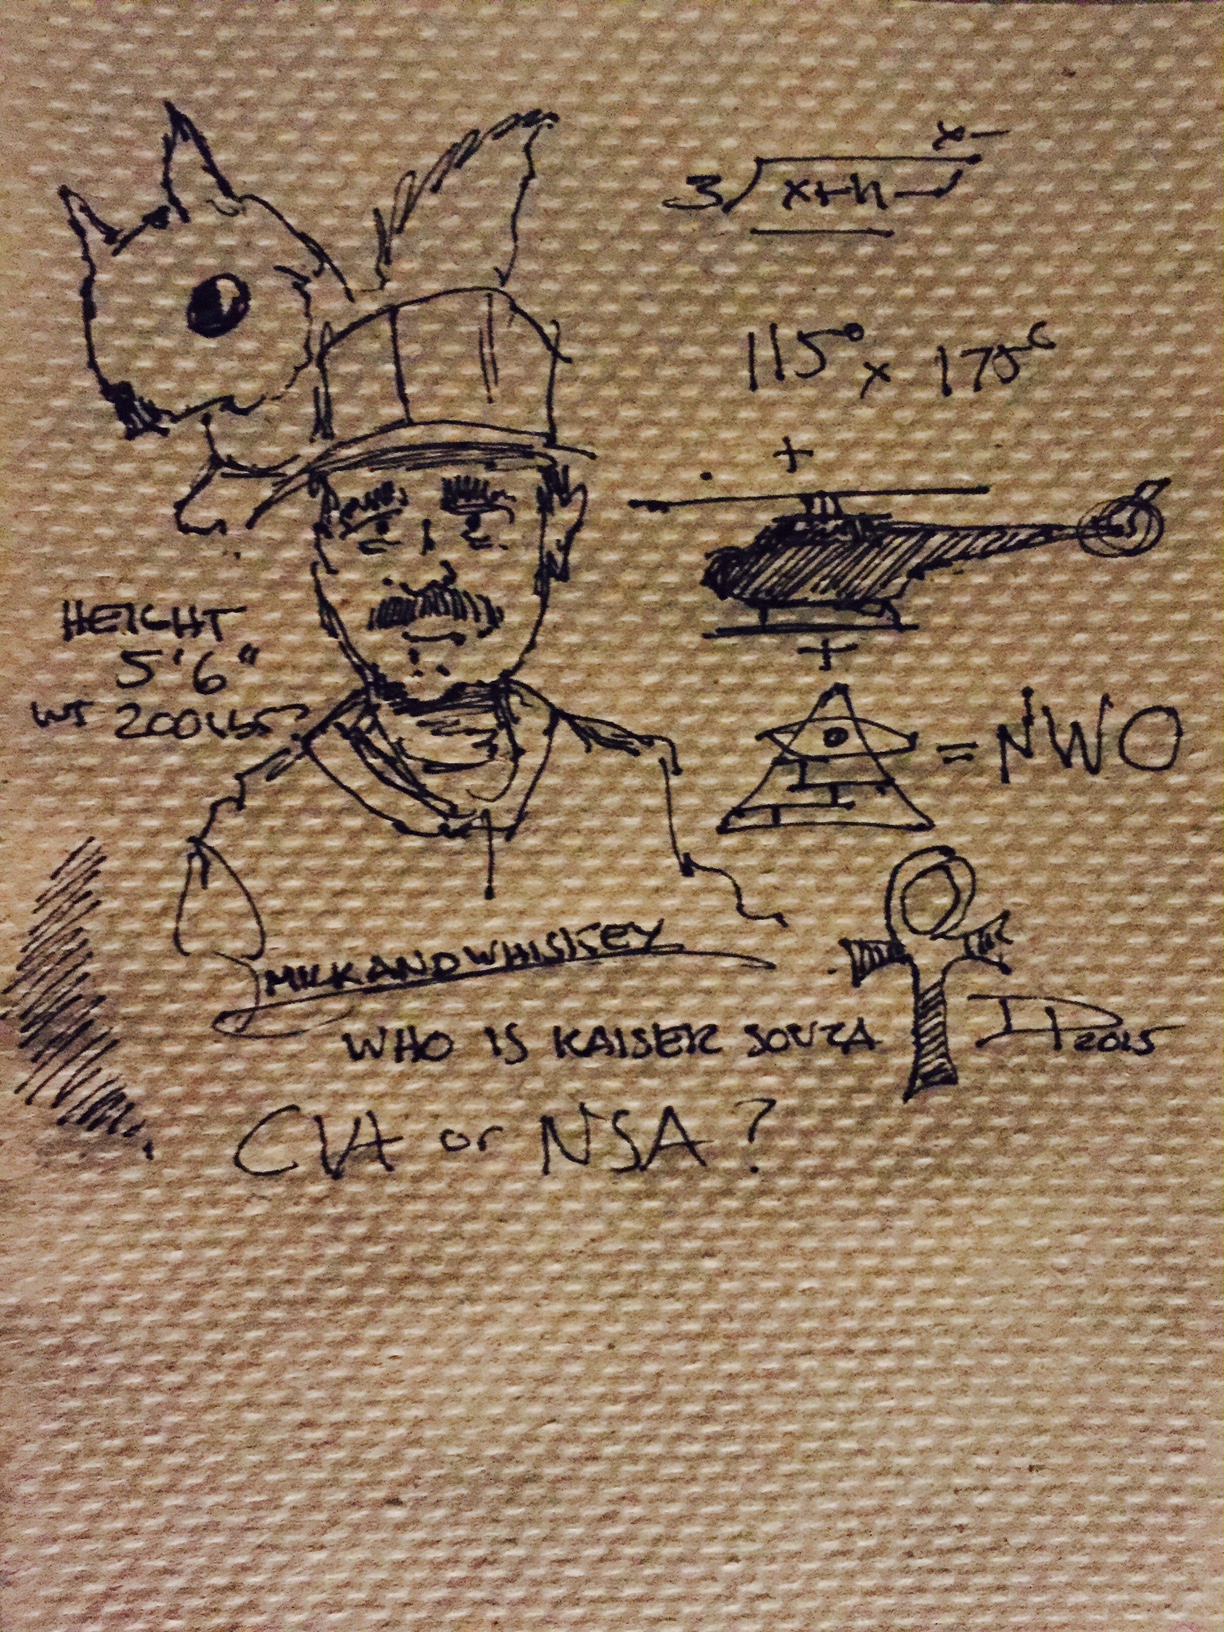 x-
3 x+n
115° x 175°
+
HEIGHT
5'6"
WT 200LBS?
+
= NWO
MILKANDWHISKEY
WHO IS KAISER SOUZA
2015
CIA or NSA?